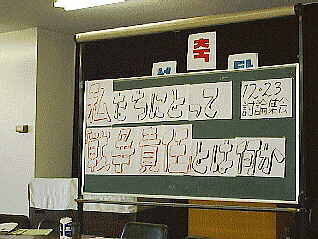 축
성 탄
12.23
討論集会
私たちにとって
戦争責任とは何か